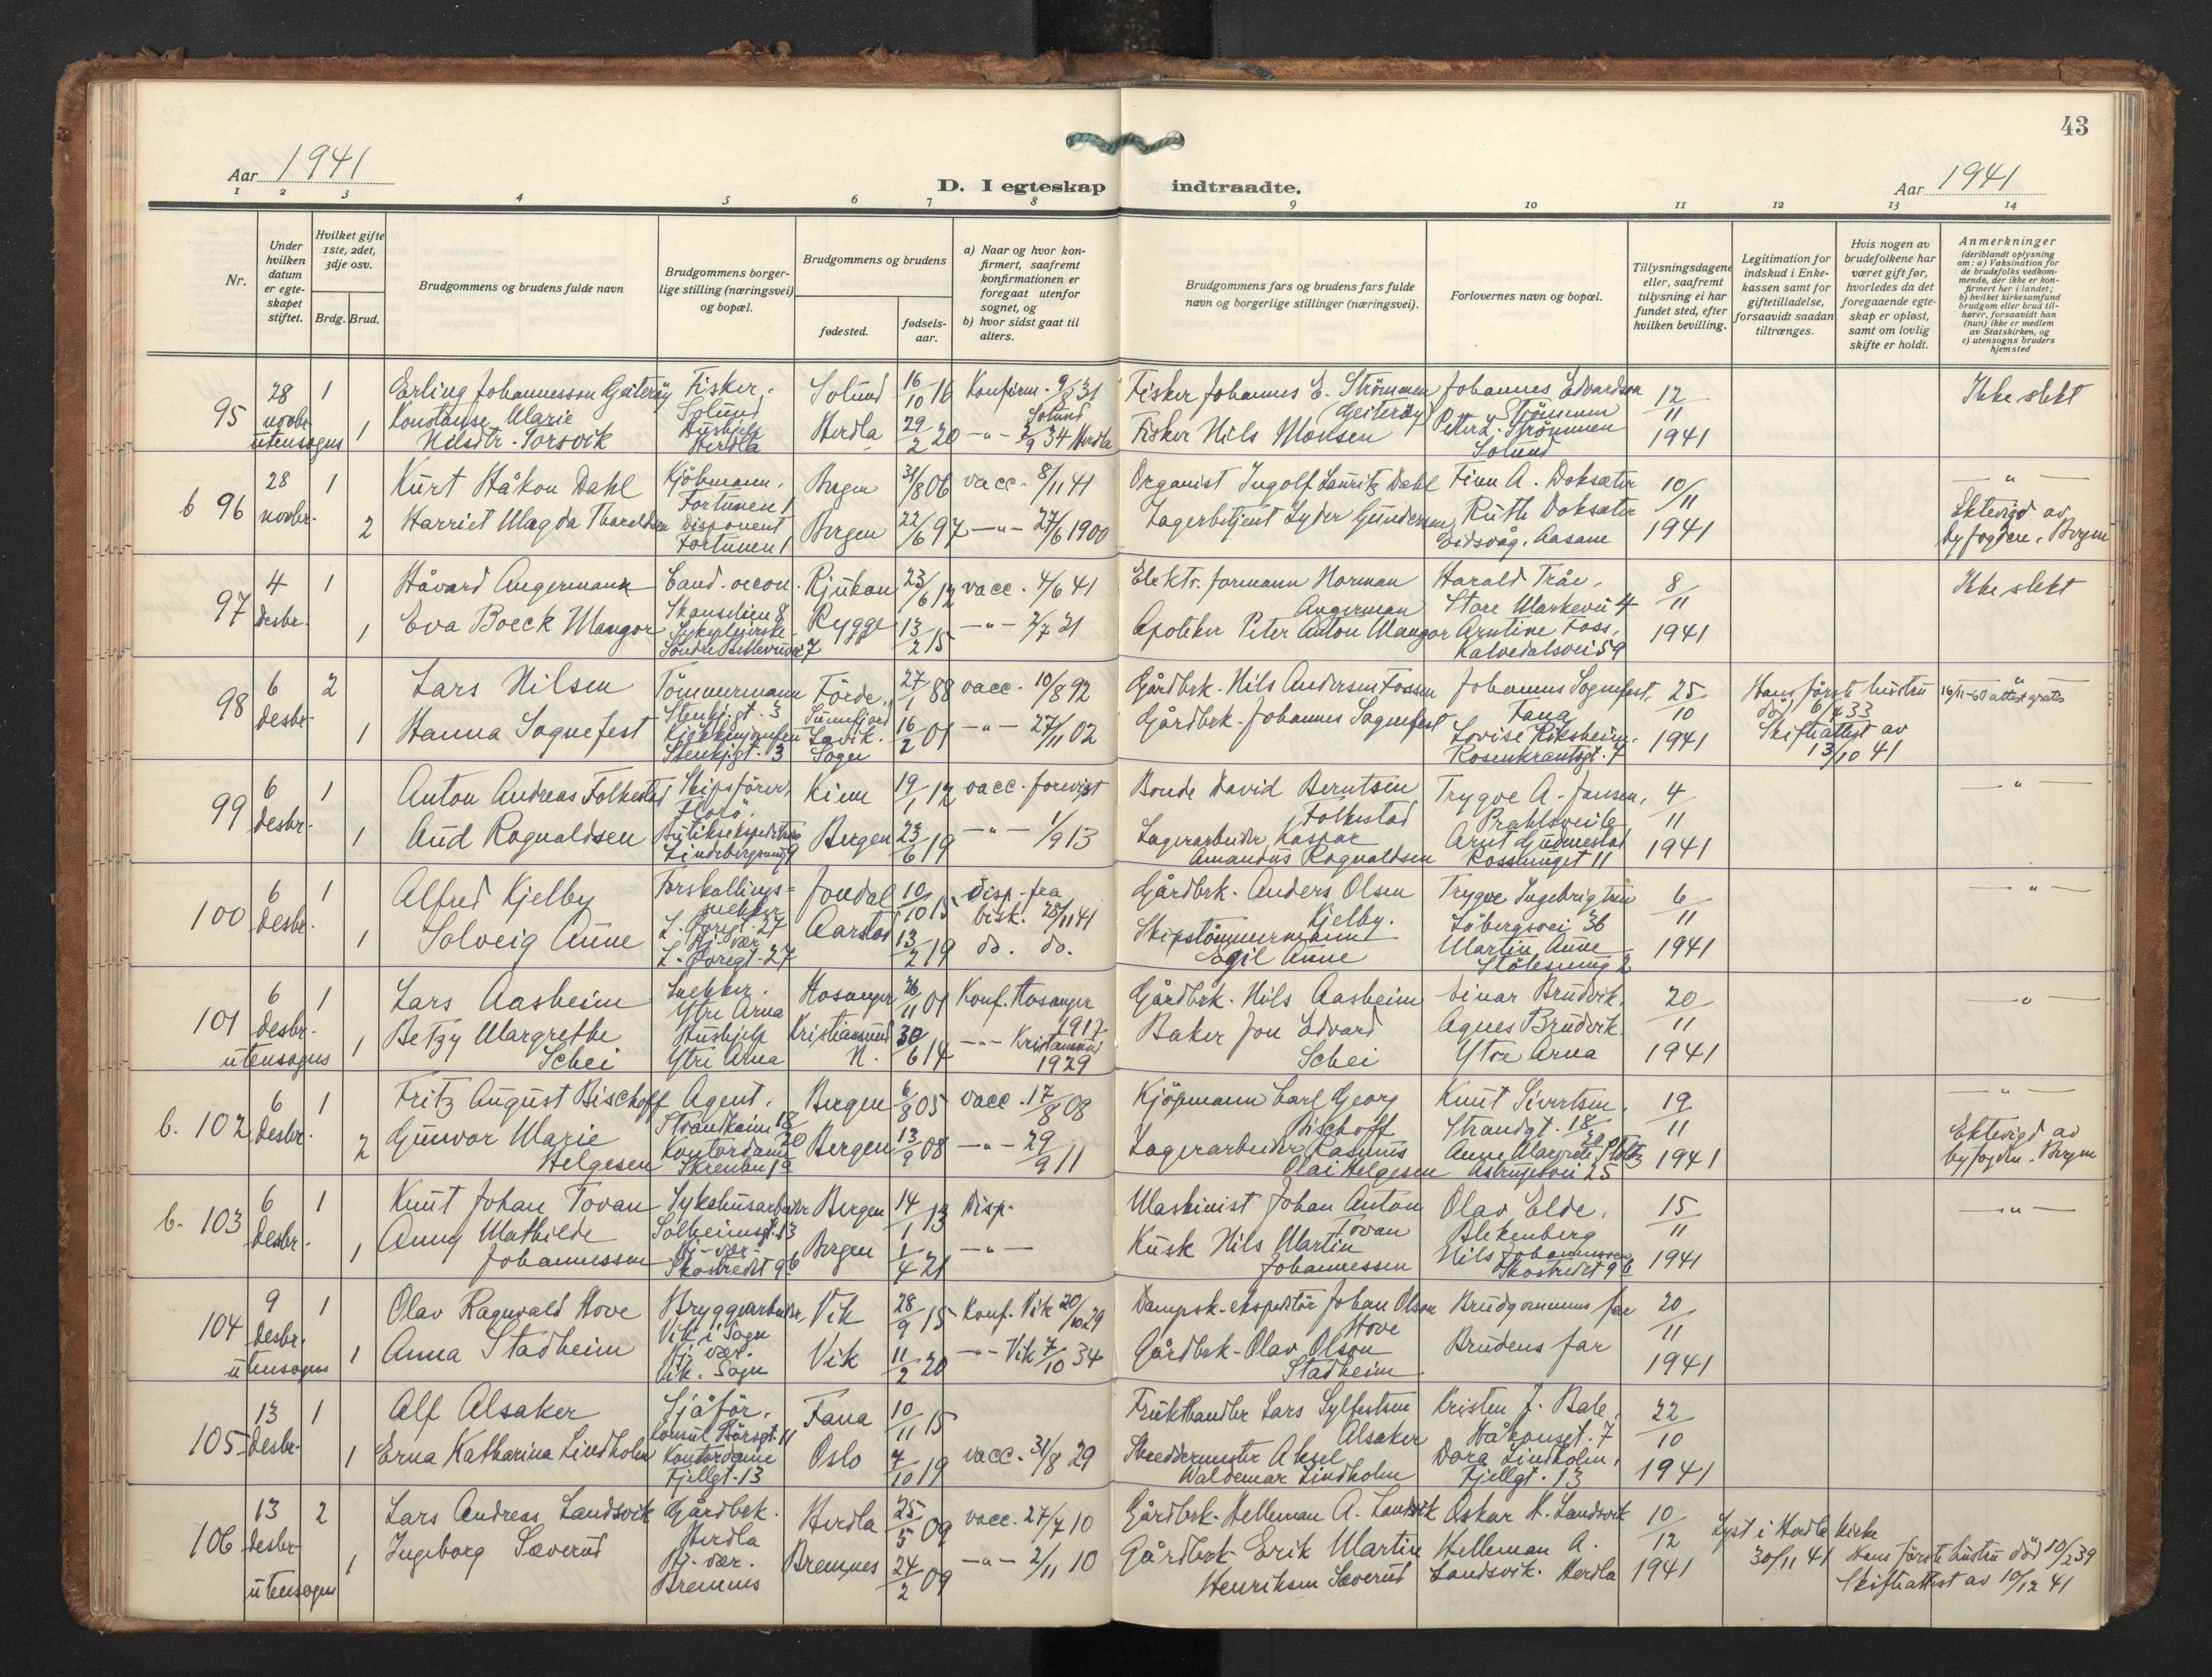 43
Aar 1941
D. I egteskap indtraadte.
Aar 1941
1 2 3 4 5 6 7 8 9 10 11 12 13 14
Nr.
Under hvilken datum er egteskapet stiftet.
Hvilket gifte 1ste, 2det, 3dje osv.
Brdg. Brud.
Brudgommens og brudens fulde navn
Brudgommens borgerlige stilling (næringsvei) og bopæl.
Brudgommens og brudens
fødested.
fødselsaar.
a) Naar og hvor konfirmert, saafremt konfirmationen er foregaat utenfor sognet, og
b) hvor sidst gaat til alters.
Brudgommens fars og brudens fars fulde navn og borgerlige stillinger (næringsvei).
Forlovernes navn og bopæl.
Tillysningsdagene eller, saafremt tillysning ei har fundet sted, efter hvilken bevilling.
Legitimation for indskud i Enkekassen samt for giftetilladelse, forsaavidt saadan tiltrænges.
Hvis nogen av brudefolkene har været gift før, hvorledes da det foregaaende egteskap er opløst, samt om lovlig skifte er holdt.
Anmerkninger (deriblandt oplysning om: a) Vaksination for de brudefolks vedkommende, der ikke er konfirmert her i landet; b) hvilket kirkesamfund brudgom eller brud tilhører, forsaavidt han (hun) ikke er medlem av Statskirken, og c) utensogns bruders hjemsted
95 28 novbr. utensogns 1 Erling Johannesson Geiteröy Fisker. Solund Solund 16/10 16 Konfirm. 9/8 31 Solund Fisker Johannes E. Strömmen (Geiteröy) Johannes Edvardsen Strömmen 12/11 1941 Ikke slekt
1 Konstanse Marie Nilsdtr. Torsvik Hushjelp Herdla Herdla 29/2 20 -"- 2/9 34 Herdla Fisker Nils Monsen Peter L. Strömmen Solund
b 96 28 novbr. 1 Kurt Håkon Dahl Kjöbmann. Fortunen 1 Bergen 31/8 06 vacc. 8/11 41 Organist Ingolf Lauritz Dahl Finn A. Doksæter 10/11 1941 -"-
2 Harriet Magda Tharaldsen Disponent Fortunen 1 Bergen 22/6 97 -"- 27/6 1900 Lagerbetjent Lyder Gundersen Ruth Doksæter Eidsvåg. Aasane Ektevigd av byfogden. Bergen
97 4 desbr. 1 Håvard Angermann Cand. oecon. Skanselien 8 Rjukan 23/6 12 vacc. 4/6 41 Elektr. formann Norman Angerman Harald Tråe, Store Markevei 4 8/11 1941 Ikke slekt
1 Eva Boeck Mangor Sykepleierske Söndre Bellevuevei 7 Rygge 13/2 15 -"- 2/7 21 Apoteker Peter Anton Mangor Arntine Foss, Kalvedalsvei 59
98 6 desbr. 2 Lars Nilsen Tömmermann Stenkjgt. 3 Förde, Sunnfjord 27/1 88 vacc. 10/8 92 Gårdbrk. Nils Andersen Fossen Johannes Sognefest, Fana 25/10 1941 Hans förste hustru död 6/4 33 Skifteattest av 13/10 41 16/11-60 attest gratis
1 Hanna Sognefest Kjökkenjomfru Stenkjgt. 3 Lavik. Sogn 16/2 01 -"- 27/11 02 Gårdbrk. Johannes Sognefest Lovise Riksheim. Rosenkrantzgt. 7
99 6 desbr. 1 Anton Andreas Folkestad Skipsförer, Florö. Kinn 19/1 12 vacc. forevist Bonde David Berntsen Folkestad Trygve A. Jansen, Prahlsvei 4/11 1941 -"-
1 Aud Rognaldsen Butikkekspeditrise Bergen 23/6 19 -"- 1/9 13 Lagerarbeider Kaspar Amandus Rognaldsen Arnt Gudmestad
100 6 desbr. 1 Alfred Kjelby Forskallingssnekker L. Övregt. 27 Jondal 10/10 15 disp. fra bisk. 28/11 41 Gårdbrk. Anders Olsen Kjelby. Trygve Ingebrigtsen Löbergsvei 36 6/11 1941 -"-
1 Solveig Aune Hj. vær. L. Övregt. 27 Aarstad 13/2 19 do. do. Skipstömmermann Egil Aune Martin Aune
101 6 desbr. utensogns 1 Lars Aasheim Snekker. Ytre Arna Hosanger 26/11 01 Konf. Hosanger 1917 Gårdbrk. Nils Aasheim Einar Brudvik. 20/11 1941 -"-
1 Betzy Margrethe Schei Hushjelp Ytre Arna Kristiansund N. 30/6 14 -"- Kristiansund 1929 Baker Jon Edvard Schei Agnes Brudvik Ytre Arna
b. 102 6 desbr. 1 Fritz August Bischoff Agent. Strandkaien 18 Bergen 6/8 05 vacc. 17/8 08 Kjöpmann Carl Georg Bischoff Knut Sivertsen. Strandgt. 18 19/11 1941 -"-
2 Gunvor Marie Helgesen Kontordame Skrenten 19 Bergen 13/9 08 -"- 29/9 11 Lagerarbeider Rasmus Olai Helgesen Anne Margrete Astrupsvei 25 Ektevigd av byfogden. Bergen
b. 103 6 desbr. 1 Knut Johan Tovan Sykehusarbeider Solheimsgt. 13 Bergen 14/1 13 Disp. Maskinist Johan Anton Tovan Olav Elde, Blekenberg 15/11 1941 -"-
1 Anny Mathilde Johannessen Hj. vær. Skostredet 9b Bergen 1/4 21 -"- Kusk Nils Martin Johannessen Nils Johannessen Skostredet 9b
104 9 desbr. utensogns 1 Olav Ragnvald Hove Bryggearbeider, Vik i Sogn Vik 28/9 15 Konf. Vik 20/10 29 Dampsk. ekspeditör Johan Olson Hove Brudgommens far 20/11 1941
1 Anna Stadheim Hj. vær. Vik. Sogn Vik 11/2 20 -"- Vik 7/10 34 Gårdbrk. Olav Olson Stadheim Brudens far
105 13 desbr. 1 Alf Alsaker Sjåför. Konsul Börsgt. 11 Fana 10/11 15 Frukthandler Lars Sylfestsen Alsaker Kristen J. Bale, Håkonsgt. 7 22/10 1941
1 Erna Katharina Lindholm Kontordame Fjellgt. 13 Oslo 7/10 19 vacc. 31/8 29 Skreddermester Aksel Waldemar Lindholm Dora Lindholm, Fjellgt. 13
106 13 desbr. utensogns 2 Lars Andreas Landsvik Gårdbrk. Herdla Herdla 25/5 09 vacc. 27/7 10 Gårdbrk. Helleman A. Landsvik Oskar H. Landsvik 10/12 1941 Lyst i Herdla kirke 30/11 41 Hans förste hustru död 10/2 39 Skifteattest av 10/12 41
1 Ingeborg Sæverud Hj. vær. Bremnes Bremnes 24/2 09 -"- 2/11 10 Gårdbrk. Erik Martin Henriksen Sæverud Helleman A. Landsvik. Herdla